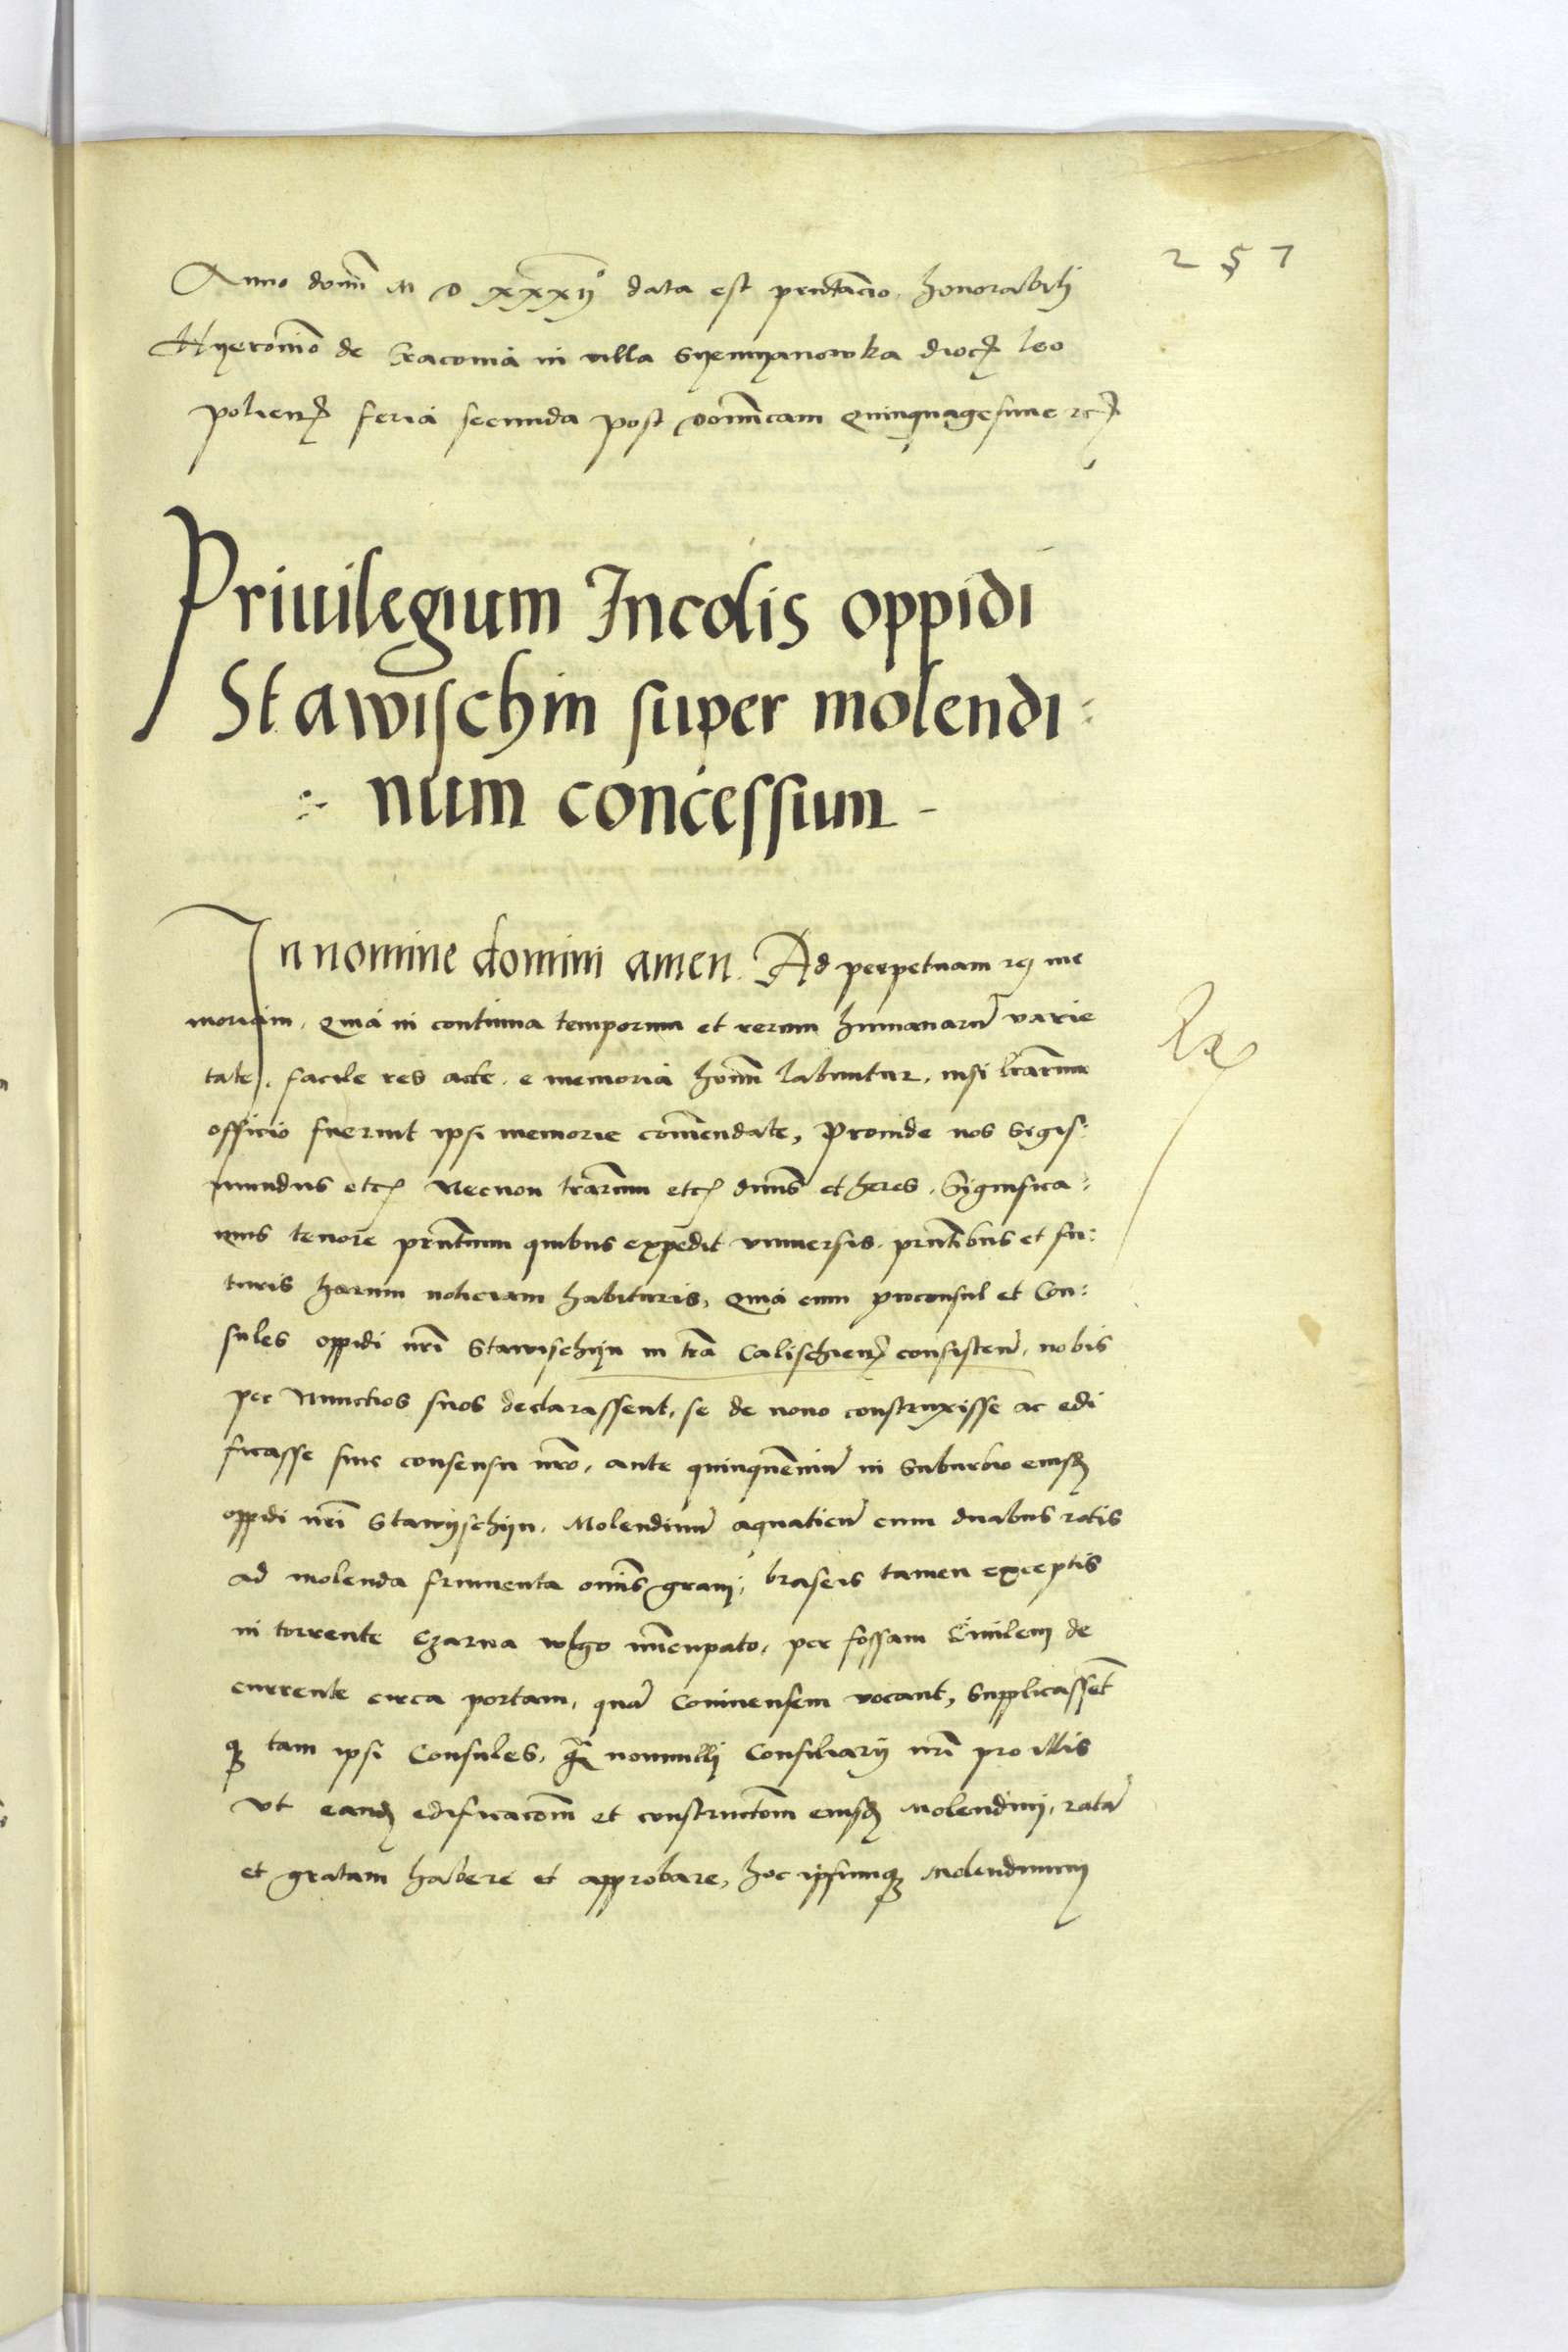 257
Anno domī M D xxxijº data est pn̄tacio honorabilj
Hyeronimo de Cracouia in villa Syemyanowka dioc̄ leo
polien̄ feria secunda post dominicam Quinquagesime etc̄
Priuilegium Incolis oppidi
Stawischin super molendi:
num concessum
In nomine domini amen. Ad perpetuam rei me
moriam. Quia in continua temporum et rerum humanarū varie
tate, facile res acte e memoria homī labuntur, nisi lrārum
officio fuerint ipsi memorie comendate, Proinde nos Sigis:
mundus etc̄ Necnon trārum etc̄ dnūs et heres, Significa:
mus tenore pn̄tium quibus expedit vniuersis pn̄tibus et fu:
turis harum noticiam habituris, Quia cum proconsul et Con:
sules oppidi nrī Stawischijn in trā Calischien̄ consisten̄, nobis
per Nunctios suos declarassent, se de nouo construxisse ac edi
ficasse sine consensu nrō, ante quinquēniū in suburbio eiusd̄
oppidi nrī Stawijschijn, Molendinū aquaticū cum duabus rotis
ad molenda frumenta omīs granj, braseis tamen exceptis
in torrente Czarna wlgo nūcupato, per fossam Ciuilem de
currente circa portam, quā Coninensem vocant, Supplicassēt
q3 tam ipsi Consules, q̄ nonnullj Consiliarij nrī pro illis
vt eand̄ edificacōm et constructōm eiusd̄ Molendinj, ratā
et gratam habere et approbare, hoc ipsumq3 Molendinum